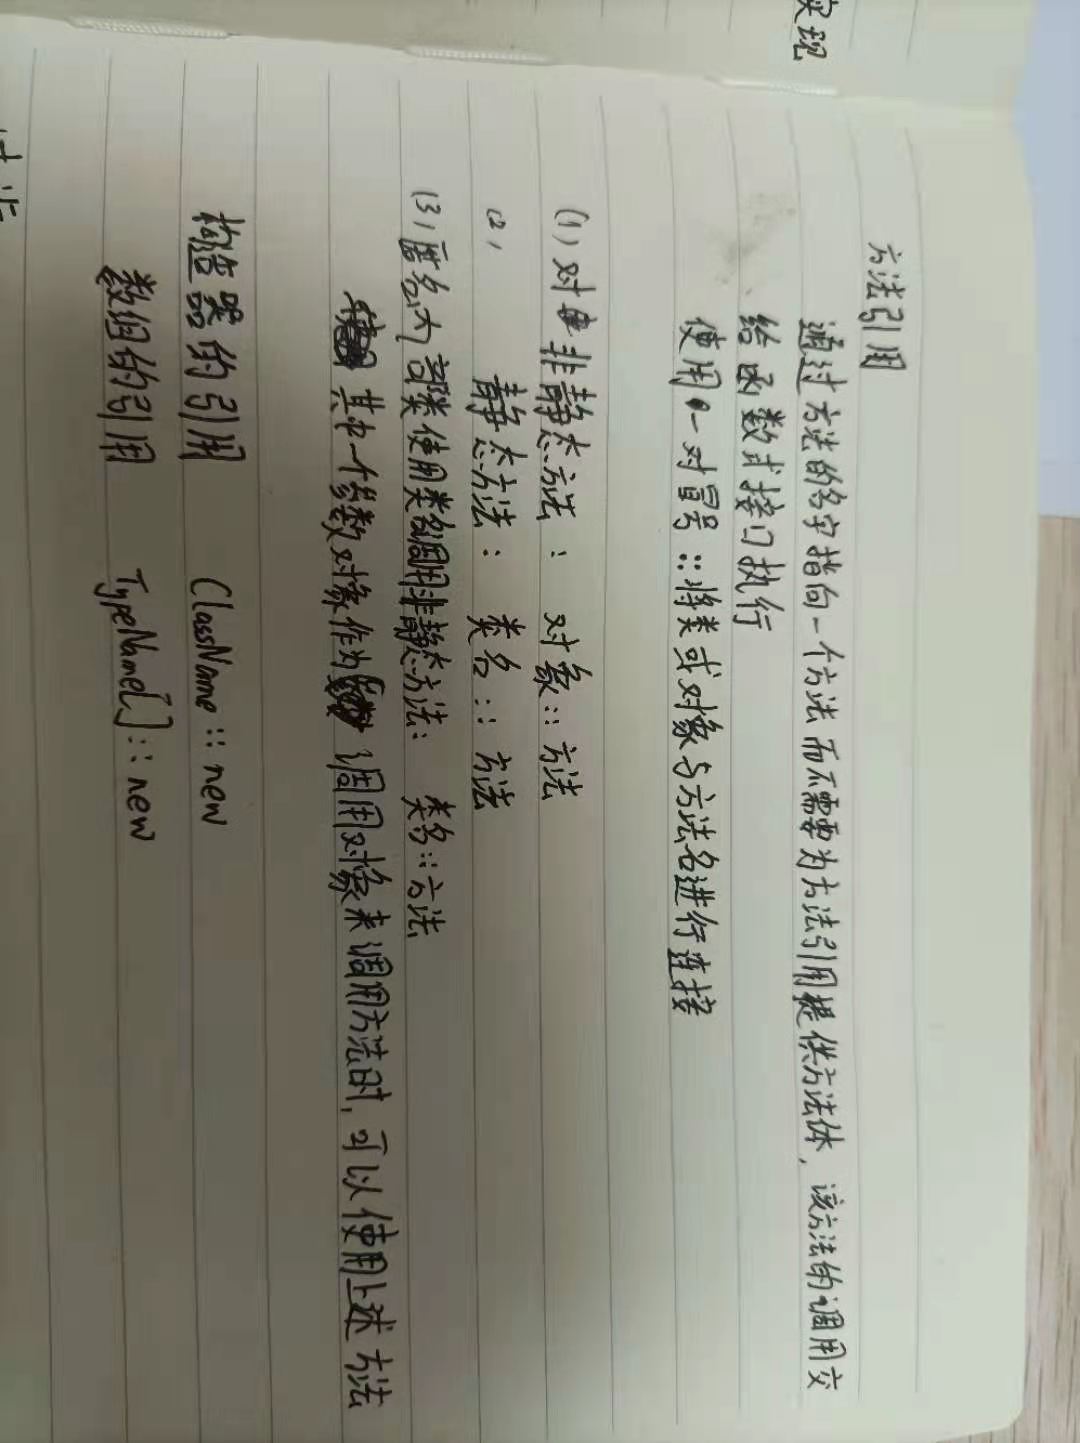 实现
方法引用
通过方法的名字指向一个方法而不需要为方法引用提供方法体,该方法的调用交
给函数式接口执行
使用一对冒号::将类或对象与方法名进行连接
(1)对非静态方法: 对象::方法
(2) 静态方法: 类名::方法
(3)匿名内部类使用类名调用非静态方法: 类名::方法
其中一个参数对象作为调用对象来调用方法时,可以使用上述方法
构造器的引用 ClassName::new
数组的引用 TypeName[]::new